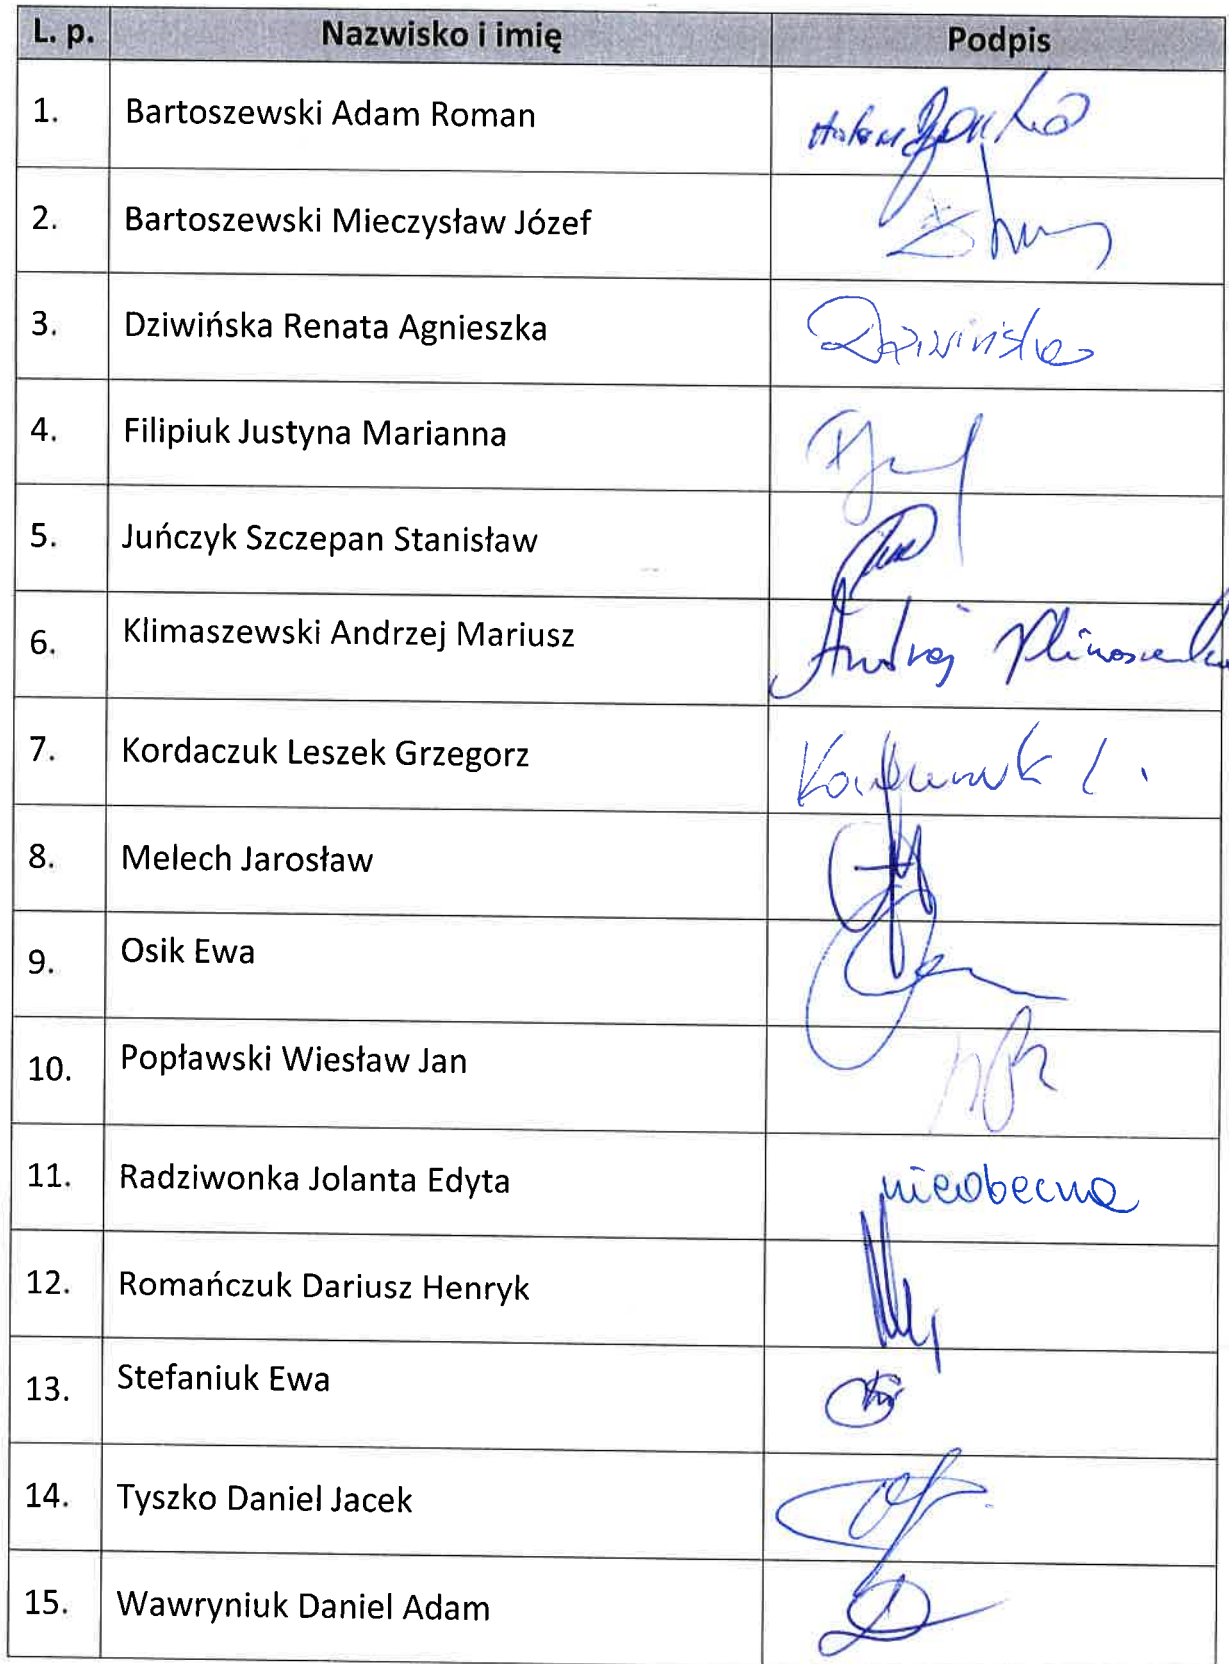 L. p. Nazwisko i imię Podpis
1. Bartoszewski Adam Roman
2. Bartoszewski Mieczysław Józef
3. Dziwińska Renata Agnieszka Dziwińska
4. Filipiuk Justyna Marianna
5. Juńczyk Szczepan Stanisław
6. Klimaszewski Andrzej Mariusz Andrzej
7. Kordaczuk Leszek Grzegorz Kordaczuk L.
8. Melech Jarosław
9. Osik Ewa
10. Popławski Wiesław Jan
11. Radziwonka Jolanta Edyta nieobecna
12. Romańczuk Dariusz Henryk
13. Stefaniuk Ewa
14. Tyszko Daniel Jacek
15. Wawryniuk Daniel Adam